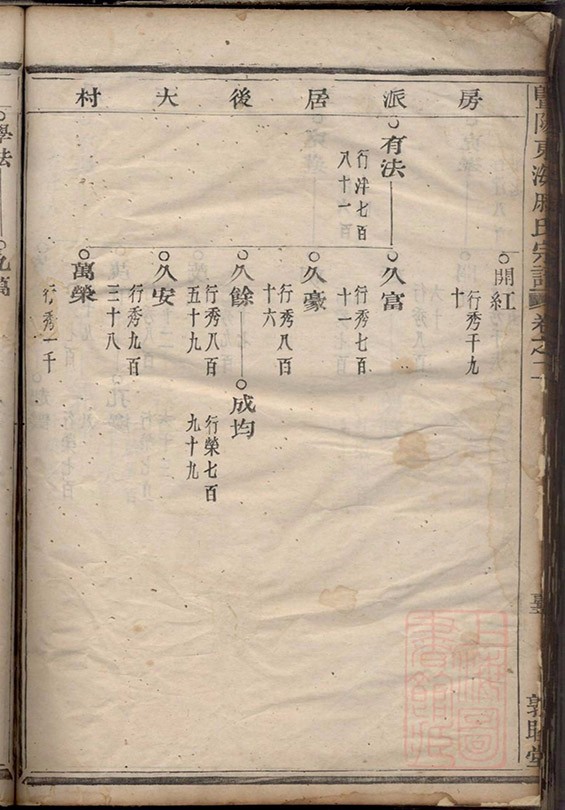 房派居後大村
開紅
行秀千九
十
有法
行洋七百
八十一
久富
行秀七百
十一
久豪
行秀八百
十六
久餘
行秀八百
五十九
成均
行榮七百
九十九
久安
行秀九百
三十八
萬榮
行秀一千
暨陽東海 氏宗譜 卷之
學法
九萬